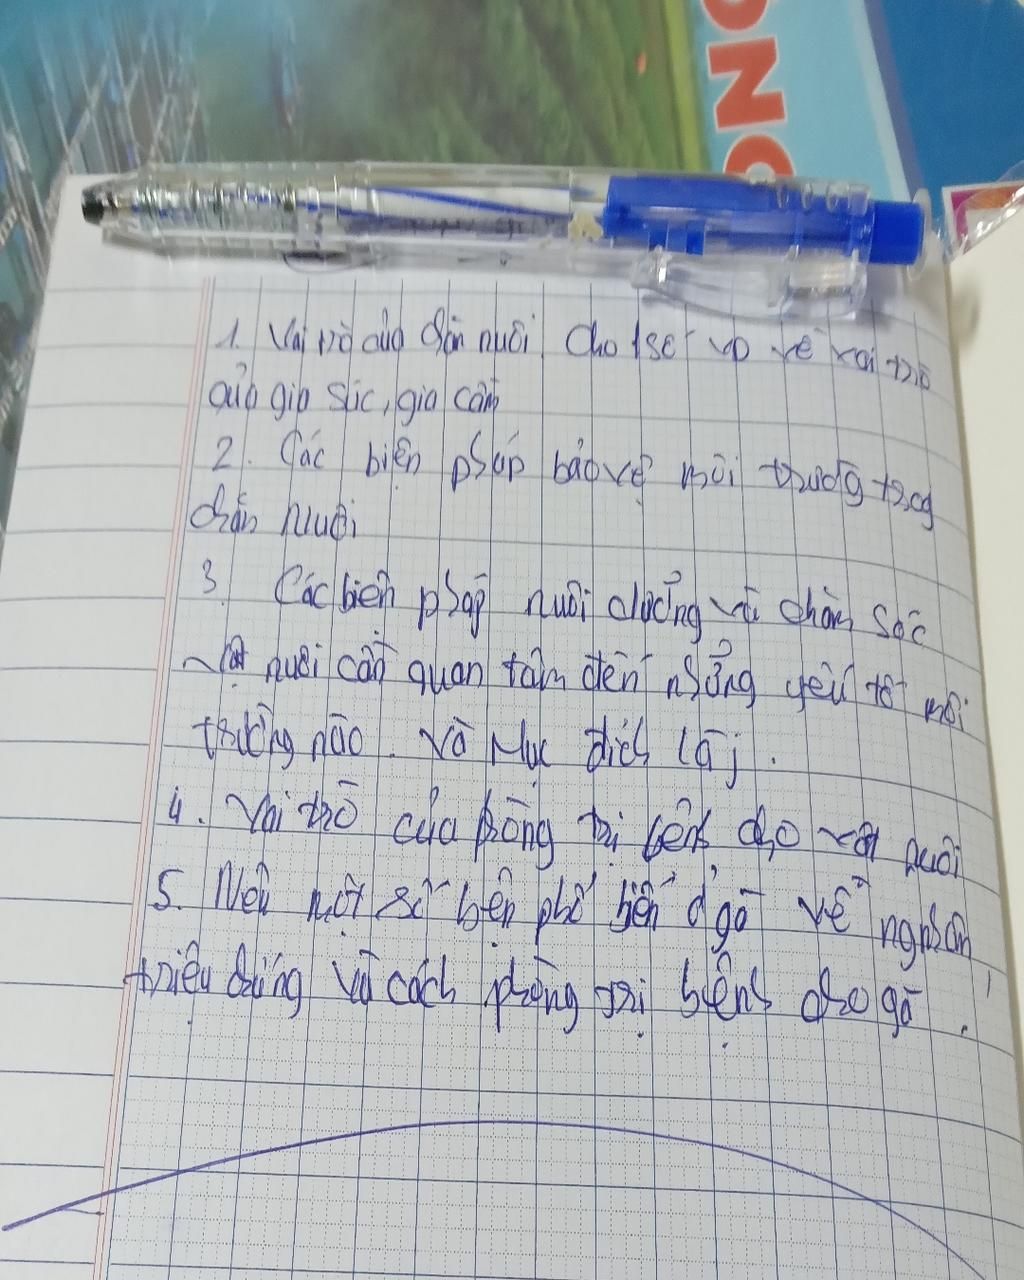 ONG
1. Vai trò của chăn nuôi. Cho 1 số VD về vai trò
của gia súc, gia cầm
2. Các biện pháp bảo vệ môi trường trog
chăn nuôi
3. Các biện pháp nuôi dưỡng và chăm sóc
vật nuôi cần quan tâm đến những yếu tố môi
trường nào. Và Mục đích là j.
4. Vai trò của phòng trị bệnh cho vật nuôi
5. Nêu một số bện phổ biến ở gà về nguyên nhân,
triệu chứng và cách phòng trị bệnh cho gà.